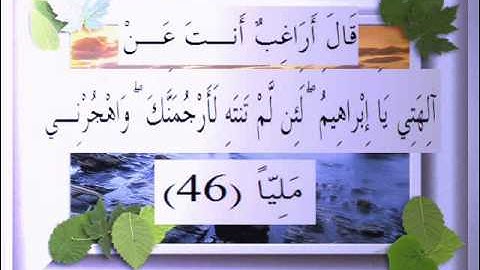 قَالَ أَرَاغِبٌ أَنتَ عَنْ
آلِهَتِي يَا إِبْرَاهِيمُ ۖ لَئِن لَّمْ تَنتَهِ لَأَرْجُمَنَّكَ ۖ وَاهْجُرْنِي
مَلِيّاً (46)